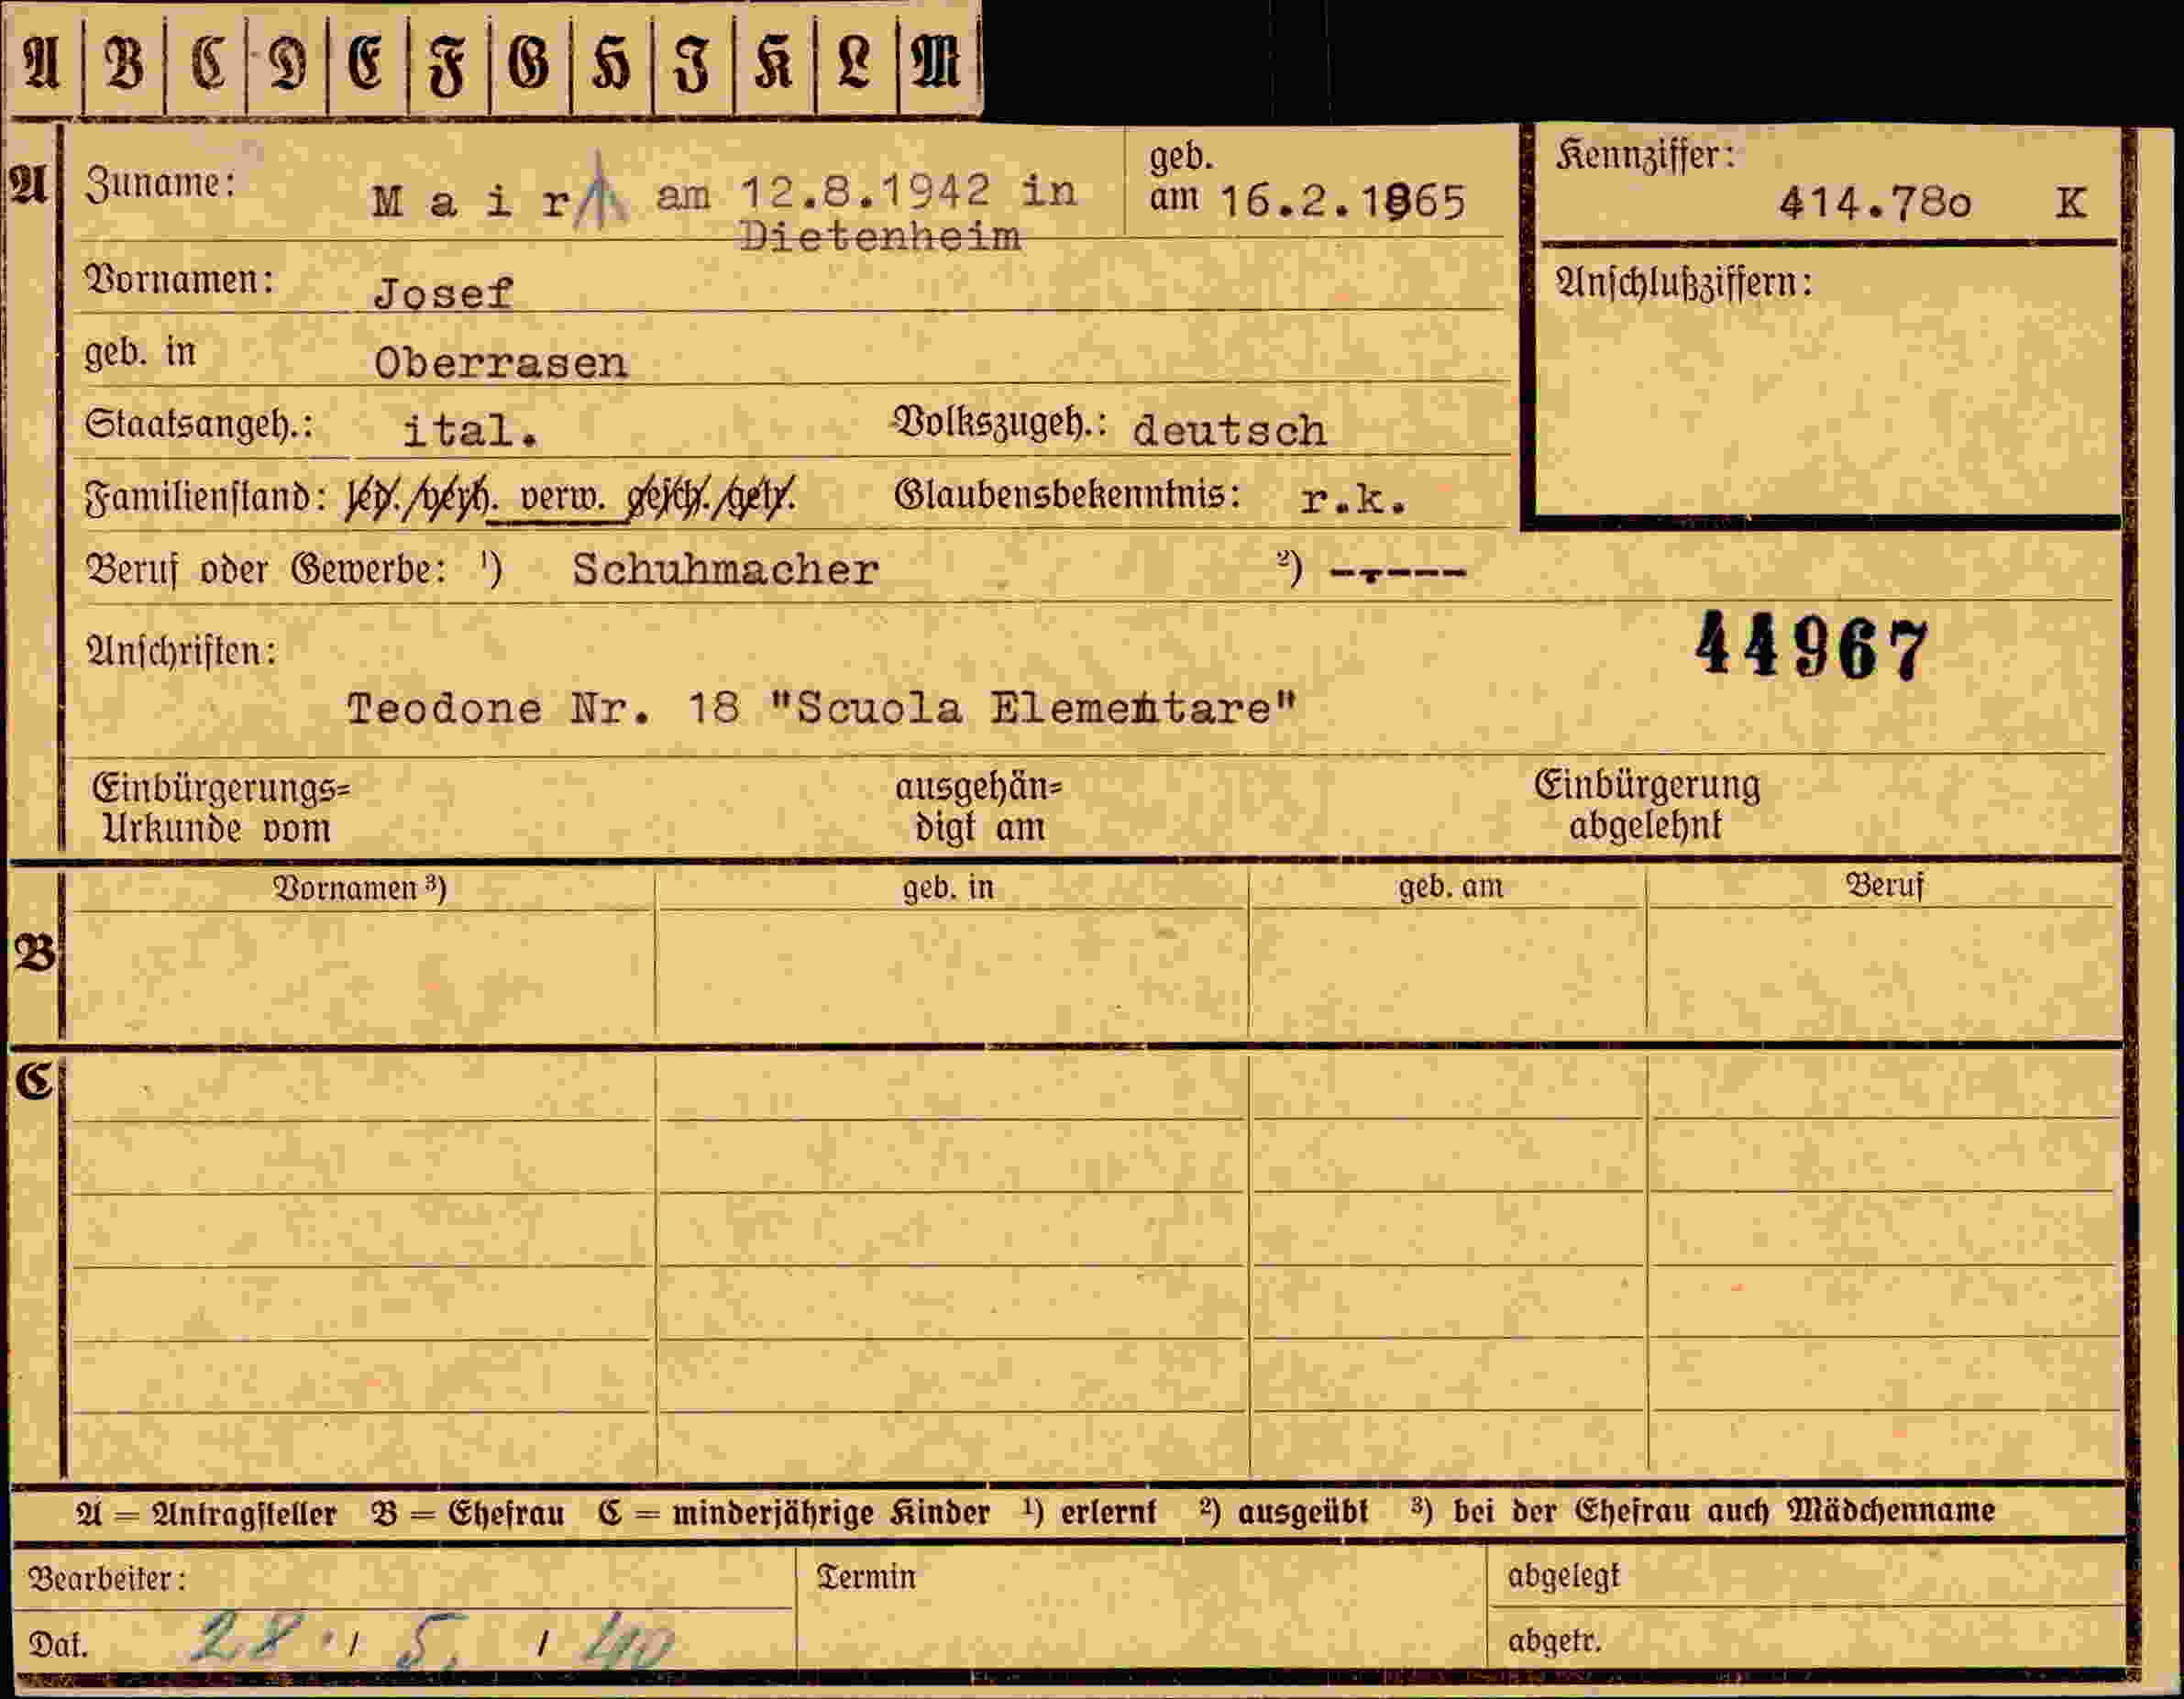 A B C D E F G H I K L M
A Zuname: Mair am 12.8.1942 in geb. am 16.2.1865 Kennziffer: 414.780 K
Dietenheim
Vornamen: Josef Anschlußziffern:
geb. in Oberrasen
Staatsangeh.: ital. Volkszugeh.: deutsch
Familienstand: led./verh. verw. gesch./getr. Glaubensbekenntnis: r.k.
Beruf oder Gewerbe: ¹) Schuhmacher ²) ------
Anschriften: 44967
Teodone Nr. 18 "Scuola Elementare"
Einbürgerungs= ausgehän= Einbürgerung
Urkunde vom digt am abgelehnt
Vornamen ³) geb. in geb. am Beruf
B
C
A = Antragsteller B = Ehefrau C = minderjährige Kinder ¹) erlernt ²) ausgeübt ³) bei der Ehefrau auch Mädchenname
Bearbeiter: Termin abgelegt
Dat. 28. / 5. / 40 abgetr.